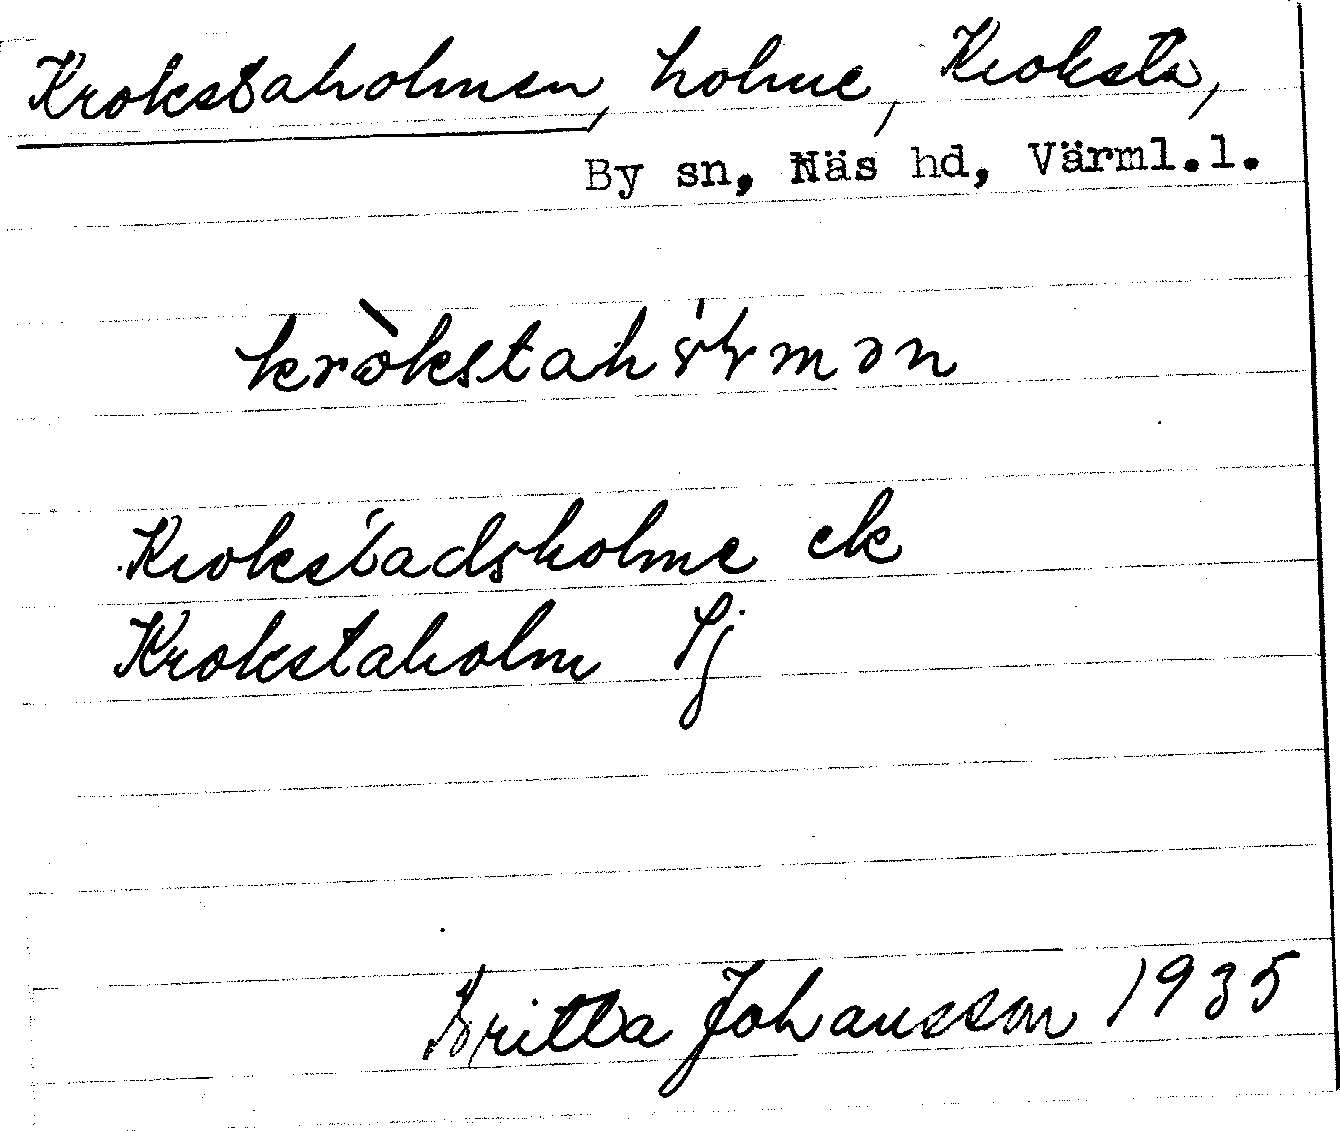 Krokstaholmen, holme, Kroksta,
By sn, Näs hd, Värml.l.
Krokstadsholme ek
Krokstaholm Sj
Britta Johansson 1935